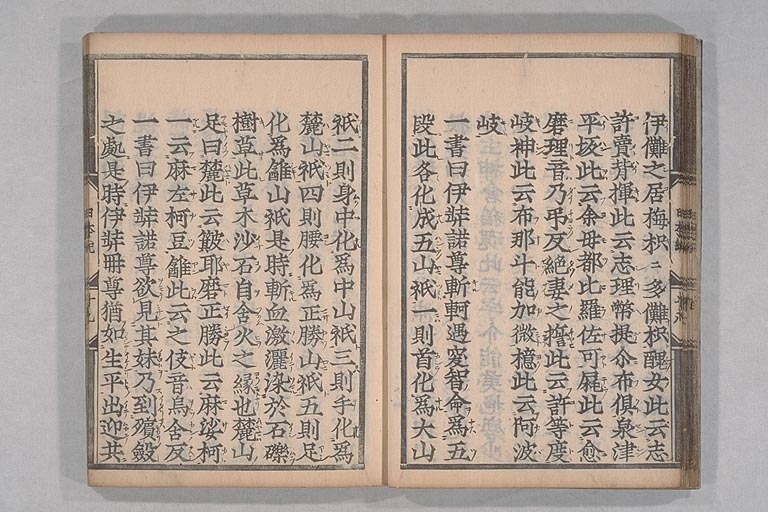 伊儺之居梅枳ミ多儺枳醜女此云志
許賣背揮此云志理幣提介布倶泉津
平坂此云余母都比羅佐可屍此云愈
磨理音乃弔反絶妻之誓此云許等度
岐神此云布那斗能加微檍此云阿波
岐
一書曰伊弉諾尊斬軻遇突智命為五
段此各化成五山祇一則首化為大山
祇二則身中化為中山祇三則手化為
麓山祇四則腰化為正勝山祇五則足
化為䨄山祇是時斬血激灑染於石礫
樹草此草木沙石自含火之縁也麓山
足曰麓此云簸耶磨正勝此云麻娑柯
一云麻左柯豆䨄此云之伎音鳥含反
一書曰伊弉諾尊欲見其妹乃到殯斂
之處是時伊弉冊尊猶如生平出迎共